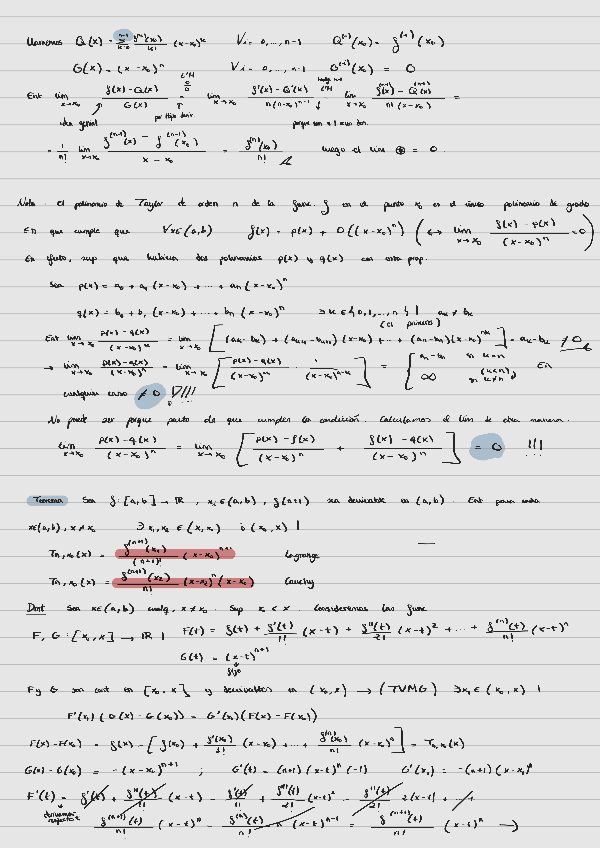 Llamamos Q(x) = Σ_{k=0}^{n-1} f^{(k)}(x₀)/k! (x-x₀)^k ∀i = 0,...,n-1 Q^{(i)}(x₀) = f^{(i)}(x₀)
G(x) = (x-x₀)^n ∀i = 0,...,n-1 G^{(i)}(x₀) = 0
Ent lim_{x→x₀} (f(x) - Q(x))/G(x) = L'H 0/0 lim_{x→x₀} (f'(x) - Q'(x))/(n(x-x₀)^{n-1}) = lim_{x→x₀} (f^{(n-1)}(x) - Q^{(n-1)}(x))/(n!(x-x₀)) =
idea genial por Hip
= 1/n! lim_{x→x₀} (f^{(n-1)}(x) - f^{(n-1)}(x₀))/(x-x₀) = f^{(n)}(x₀)/n! luego el lim ⊛ = 0.
Nota: El polinomio de Taylor de orden n de la func. f en el punto x₀ es el único polinomio de grado
En que cumple que ∀x∈(a,b) f(x) = p(x) + O((x-x₀)^n) (↔ lim_{x→x₀} (f(x) - p(x))/(x-x₀)^n = 0)
En efecto, sup que hubiera dos polinomios p(x) y q(x) con esta prop.
Sea p(x) = a₀ + a₁(x-x₀) + ... + aₙ(x-x₀)^n
q(x) = b₀ + b₁(x-x₀) + ... + bₙ(x-x₀)^n ∃k∈{0,1,...,n} | aₖ ≠ bₖ
(el primero)
Ent lim_{x→x₀} (p(x)-q(x))/(x-x₀)^k = lim_{x→x₀} [(aₖ-bₖ) + (aₖ₊₁-bₖ₊₁)(x-x₀) + ... + (aₙ-bₙ)(x-x₀)^{n-k}] = aₖ-bₖ ≠ 0
→ lim_{x→x₀} (p(x)-q(x))/(x-x₀)^n = lim_{x→x₀} [(p(x)-q(x))/(x-x₀)^k · 1/(x-x₀)^{n-k}] = { aₙ-bₙ si k=n ; ∞ si k≠n (k<n) } En
cualquier caso ≠ 0 !!!!
No puede ser porque parto de que cumplen la condición. Calculamos el lim de otra manera.
lim_{x→x₀} (p(x)-q(x))/(x-x₀)^n = lim_{x→x₀} [(p(x)-f(x))/(x-x₀)^n + (f(x)-q(x))/(x-x₀)^n] = 0 !!!
Teorema Sea f:[a,b] → ℝ, x₀∈(a,b), f^{(n+1)} sea derivable en (a,b). Ent para cada
x∈(a,b), x≠x₀ ∃x₁,x₂ ∈ (x,x₀) ó (x₀,x) |
Tn,x₀(x) = f^{(n+1)}(x₁)/(n+1)! (x-x₀)^{n+1} Lagrange
Tn,x₀(x) = f^{(n+1)}(x₂)/n! (x-x₂)^n (x-x₀) Cauchy
Dem† Sea x∈(a,b) cualq, x≠x₀. Sup x₀ < x. Consideremos las func
F, G : [x₀,x] → ℝ | F(t) = f(t) + f'(t)/1! (x-t) + f''(t)/2! (x-t)² + ... + f^{(n)}(t)/n! (x-t)^n
G(t) = (x-t)^{n+1}
fijo
F y G son cont en [x₀,x] y derivables en (x₀,x) → (TVMG) ∃x₁∈(x₀,x) |
F'(x₁)(G(x)-G(x₀)) = G'(x₁)(F(x)-F(x₀))
F(x)-F(x₀) = f(x) - [f(x₀) + f'(x₀)/1! (x-x₀) + ... + f^{(n)}(x₀)/n! (x-x₀)^n] = Tn,x₀(x)
G(x)-G(x₀) = -(x-x₀)^{n+1} ; G'(t) = (n+1)(x-t)^n(-1) G'(x₁) = -(n+1)(x-x₁)^n
F'(t) = f'(t) + f''(t)/1! (x-t) - f'(t)/1! + f'''(t)/2! (x-t)² - f''(t)/2! 2(x-t) + ... +
derivamos respecto t
f^{(n+1)}(t)/n! (x-t)^n - f^{(n)}(t)/n! n (x-t)^{n-1} = f^{(n+1)}(t)/n! (x-t)^n →